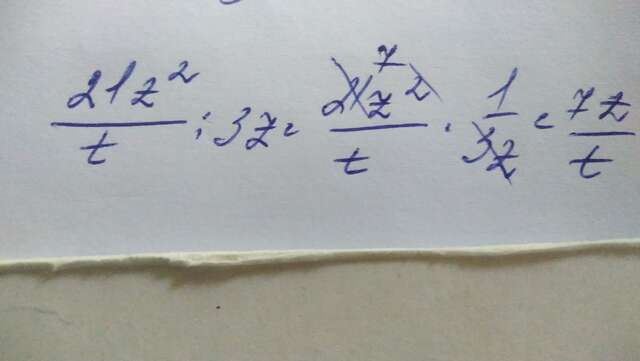 21z²/t : 3z = 7 21z²/t · 1/3z = 7z/t